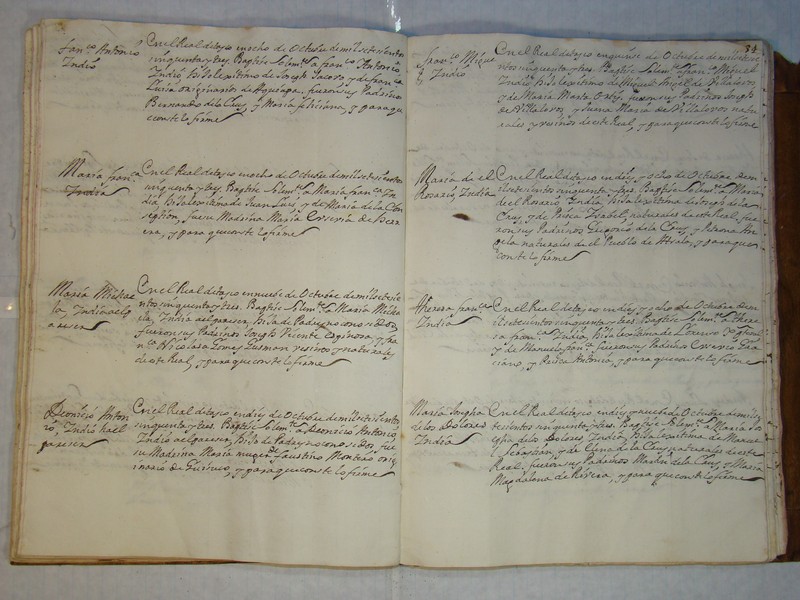 Fran.co Antonio
Indio
En el Real de tajo en ocho de Octubre de mil setesientos
sinquenta y tres, Baptise Solem.te a Fran.co Antonio,
Indio, hijo lexitimo de Joseph Jacovo, y de Fran.ca
Lucia originarios de fueron sus Padrinos
Bernardo de la Cruz, y Maria y para q.e
conste lo firme
Maria Fran.ca
India
En el Real de tajo en ocho de Octubre de mil setesientos
sinquenta y tres, Baptise Solem.te a Maria Fran.ca In-
dia, hija lexitima de Juan Luis, y de Maria de la Con-
sepsion, fue su Madrina Maria de
y para que conste lo firme
Maria Michae-
la, India al p-
areser
En el Real de tajo en nueve de Octubre de mil setesie-
ntos sinquenta y tres, Baptise Solem.te a Maria Micha-
ela, India al pareser, hija de Padres no conosidos,
fueron sus Padrinos Joseph Visente Espinosa, y Fra-
n.ca Nicolasa Gomes Gusman vesinos y naturales
de este Real, y para que conste lo firme
Deonicio Anton-
io, Indio al
pareser
En el Real de tajo en diez de Octubre de mil setesientos
sinquenta y tres, Baptise Solem.te a Deonicio Antonio,
Indio al pareser, hijo de Padres no conosidos, fue
su Madrina Maria muger de Faustino Montero orig-
inario de y para que conste lo firme
84
Fran.co Migue-
l, Indio
En el Real de tajo en quinse de Octubre de mil setesie-
ntos sinquenta y tres, Baptise Solem.te a Fran.co Miguel
Indio, hijo lexitimo de Miguel Angel de Villalovos
y de Maria Marta Ortiz, fueron sus Padrinos Joseph
de Villalovos, y Juana Maria de Villalovos natu-
rales y vesinos de este Real, y para que conste lo firme
Maria de el
Rosario, India
En el Real de tajo en diez, y ocho de Octubre de m-
il setesientos sinquenta y tres, Baptise Solem.te a Maria
de el Rosario, India, hija lexitima de Joseph de la
Cruz, y de Ysabel, naturales de este Real, fue-
ron sus Padrinos Gregorio de la Cruz, y Petrona An-
gela naturales de el Pueblo de y para que
conste lo firme
Theresa Fran.ca
India
En el Real de tajo en diez, y ocho de Octubre de m-
il setesientos sinquenta y tres, Baptise Solem.te a There-
sa Fran.ca India, hija lexitima de Lorenso
y de Manuela Fran.ca fueron sus Padrinos
y Antonia, y para que conste lo firme
Maria Josepha
de los Dolores
India
En el Real de tajo en diez y nueve de Octubre de mil se-
tesientos sinquenta y tres, Baptise Solem.te a Maria Jos-
epha de los Dolores, India, hija lexitima de Manuel
Sebastian, y de Elena de la Cruz naturales de este
Real, fueron sus Padrinos Martin de la Cruz, y Maria
Magdalena de Rivera, y para que conste lo firme